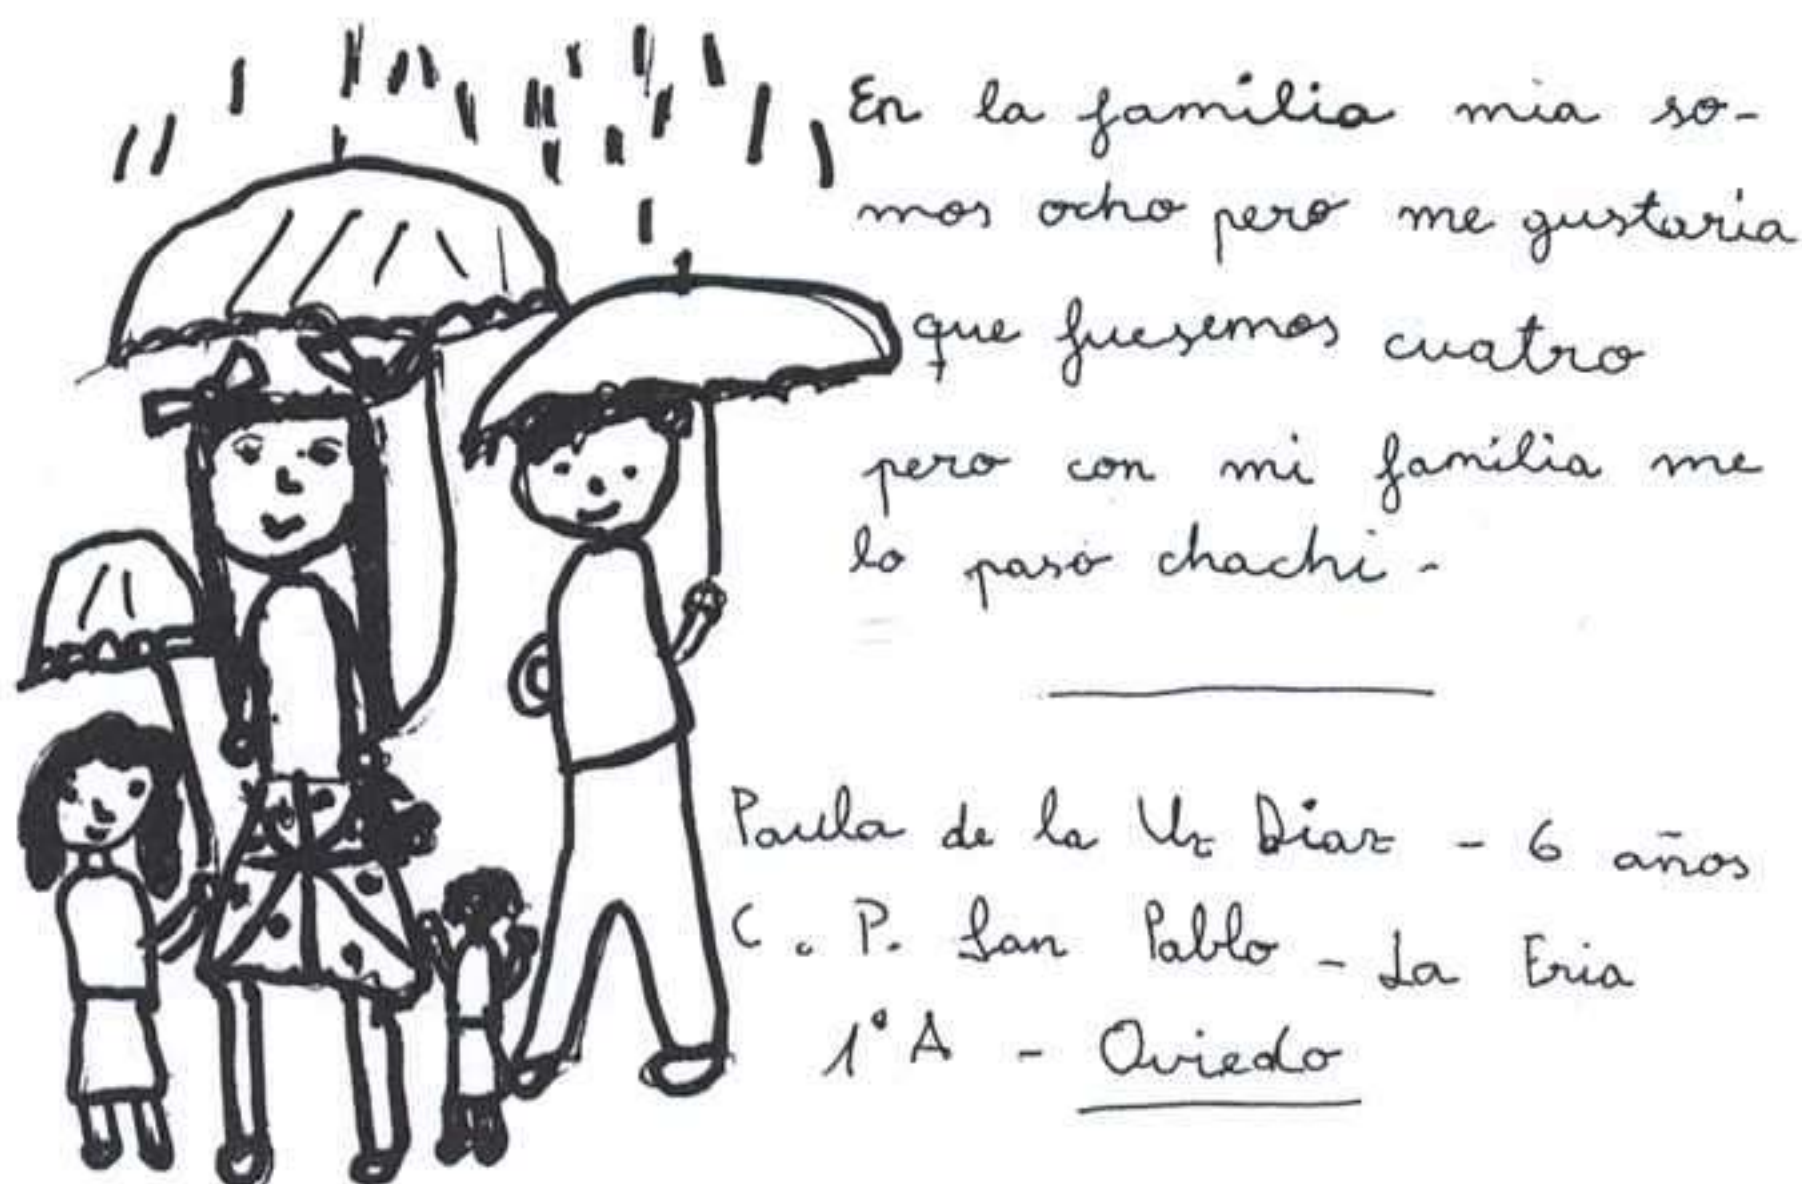 En la familia mia so-
mos ocho pero me gustaria
que fuesemos cuatro
pero con mi familia me
lo paso chachi -
Paula de la Uz Diaz - 6 años
C. P. San Pablo - La Eria
1º A - Oviedo